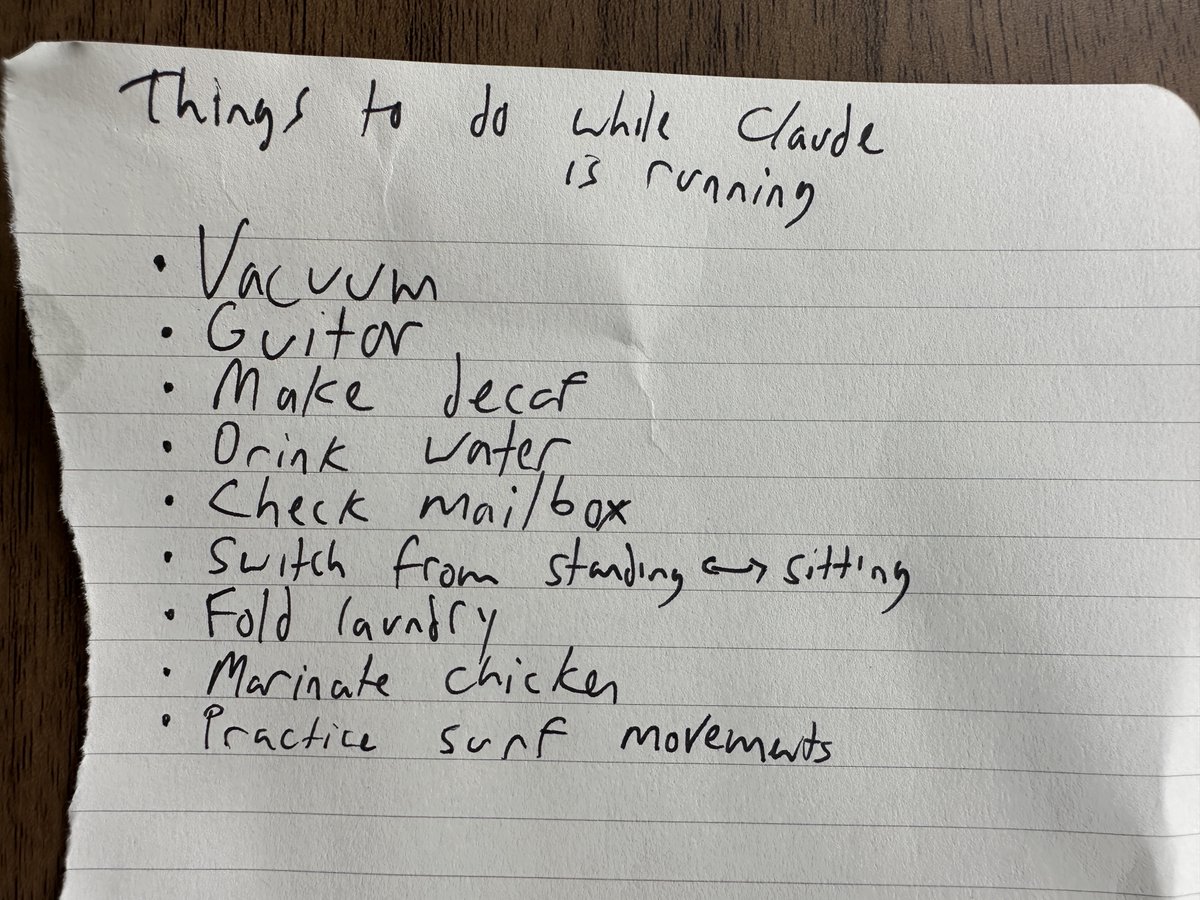 Things to do while Claude
is running
• Vacuum
• Guitar
• Make decaf
• Drink water
• Check mailbox
• Switch from standing ↔ sitting
• Fold laundry
• Marinate chicken
• Practice surf movements